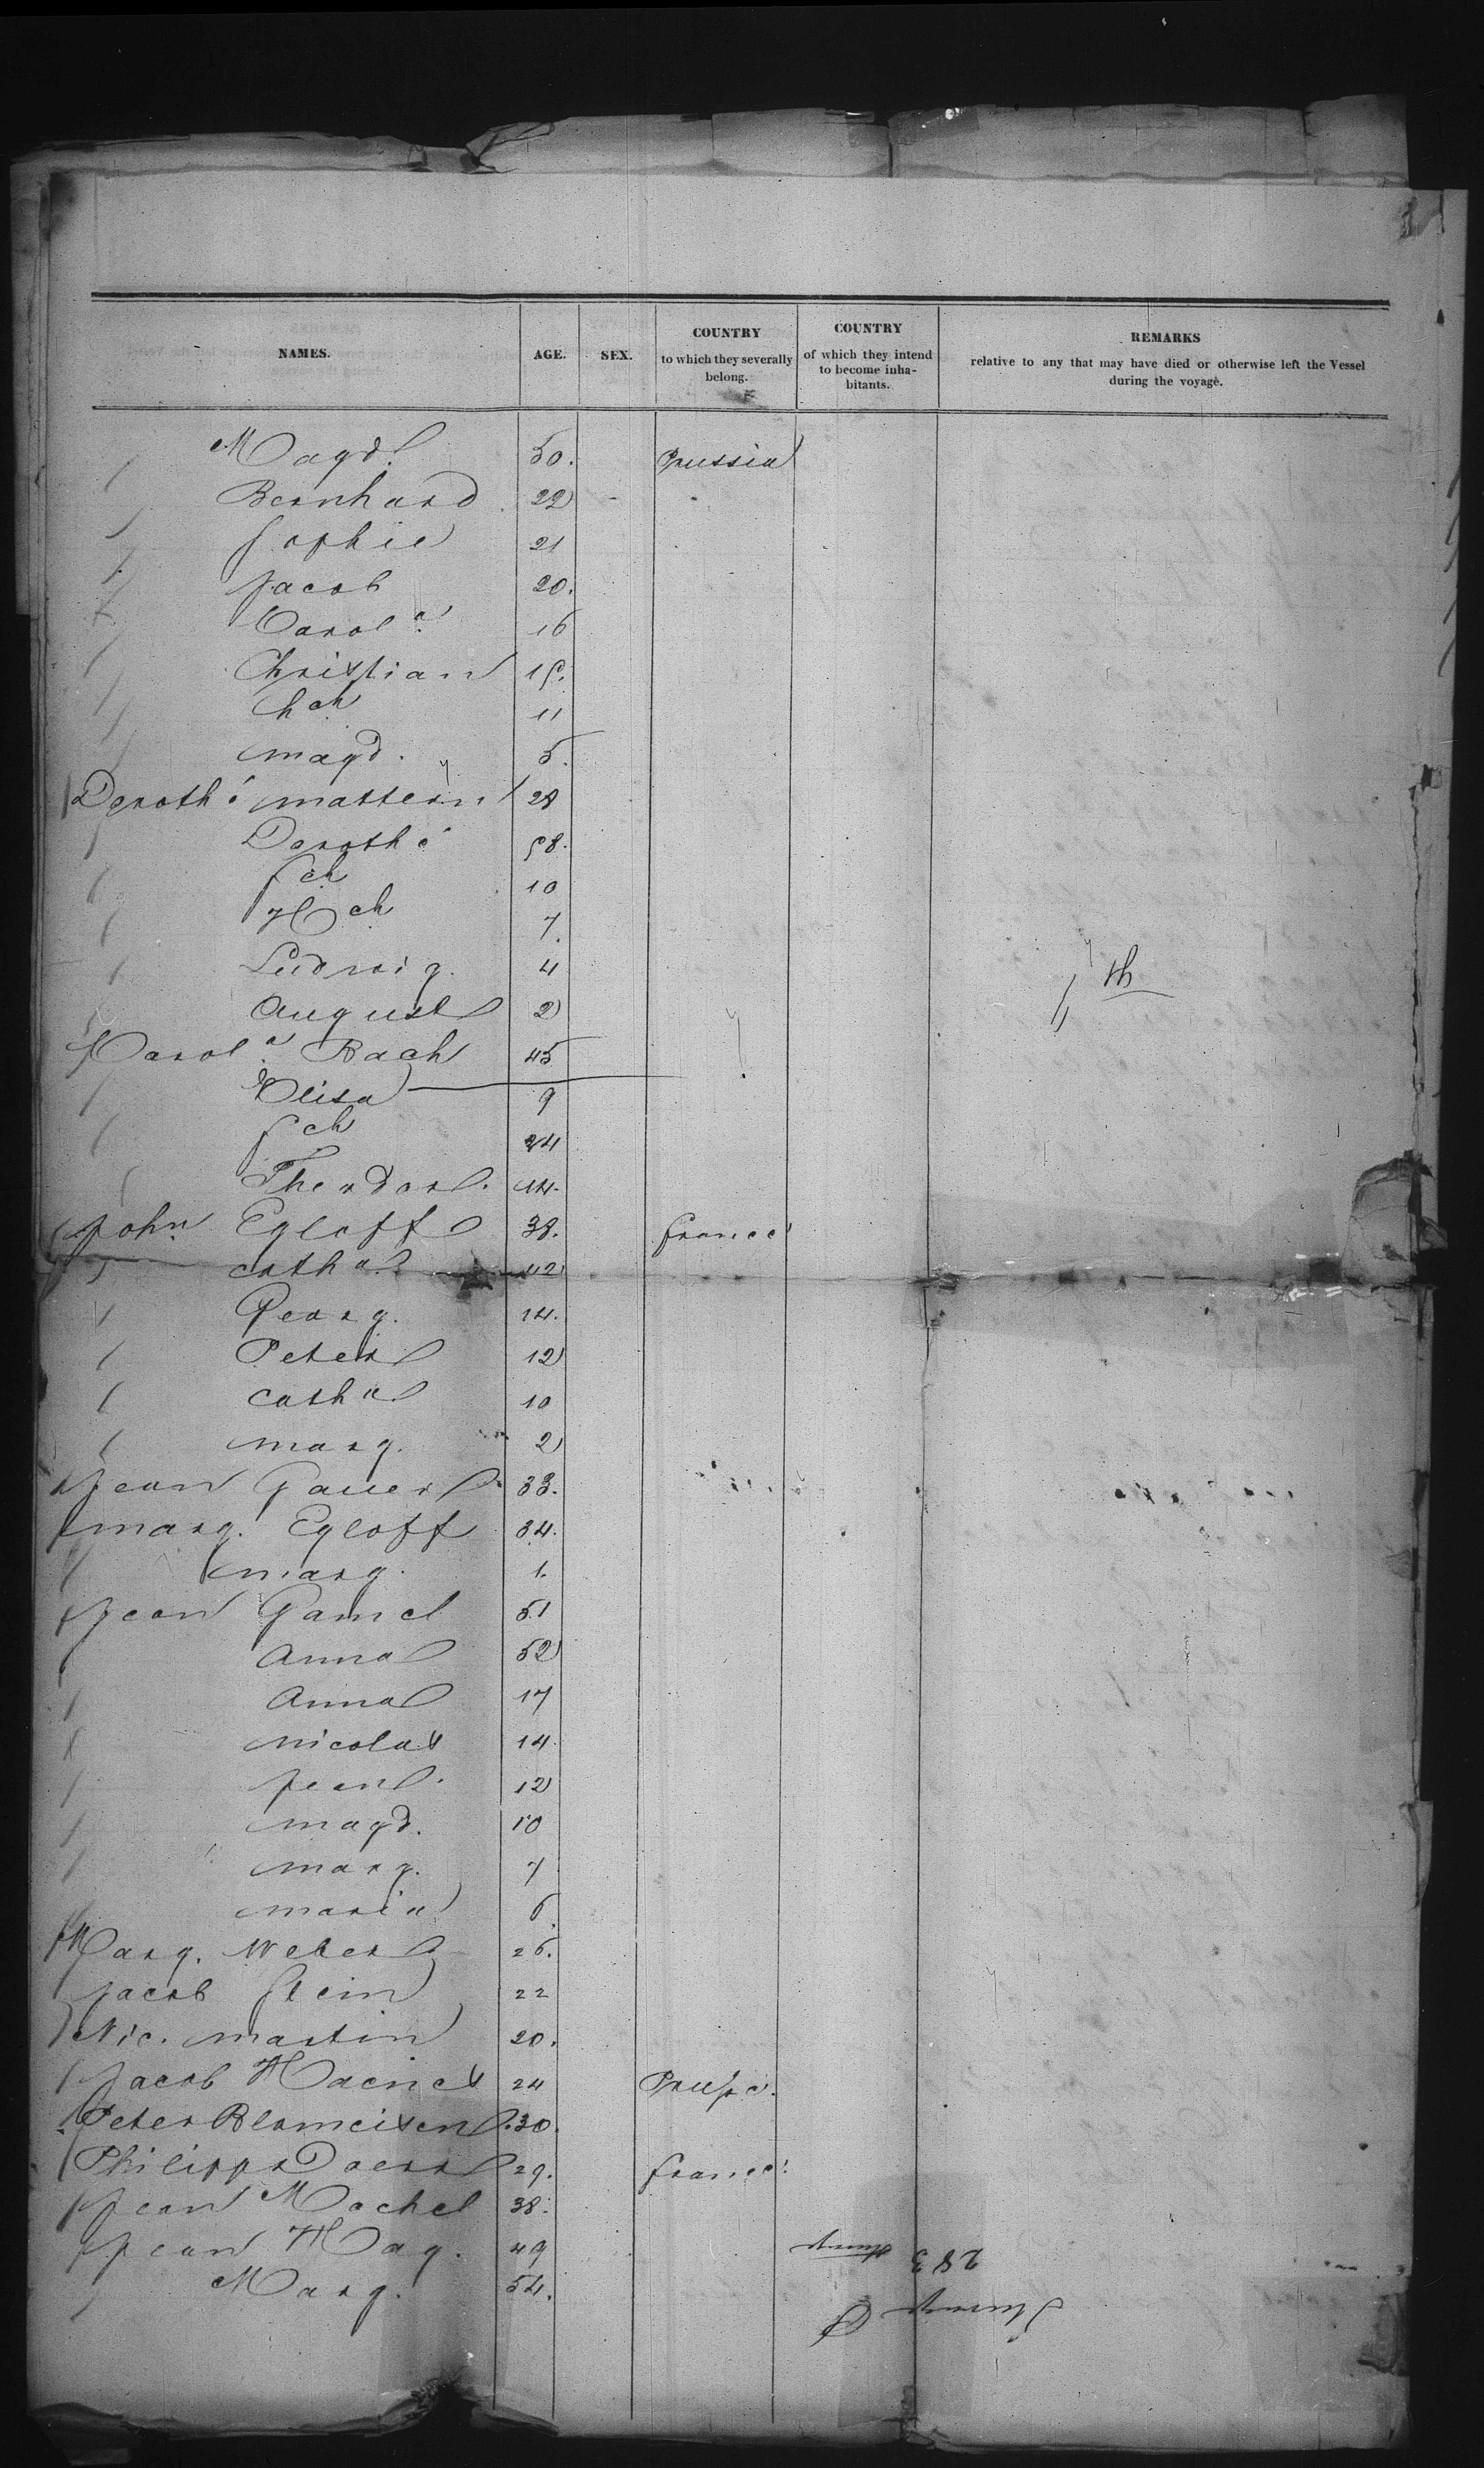 NAMES. AGE. SEX. COUNTRY to which they severally belong. COUNTRY of which they intend to become inha-bitants. REMARKS relative to any that may have died or otherwise left the Vessel during the voyage.
Magd. 50. Prussia
Bernhard 22
Sophie 21
Jacob 20.
Carol.a 16
Christian 15.
hch 11
magd. 5.
Doroth.é mattern 28
Dorothé 58.
fch 10
Hch 7.
Ludwig. 4
August 2
Carol.a Bach 45
Elisa 9
fch 24
Theodor. 14.
John Egloff 38. france
catha. 42
Georg. 14.
Peter 12
catha 10
marg. 2
Jean Gauer 33.
marg. Egloff 34.
marg. 1.
Jean Gamel 51
Anna 52
Anna 17
nicolas 14.
jean. 12
magd. 10
marg. 7
maria 6.
Marg. Weber 26.
Jacob Stein 22
Nic. martin 20.
Jacob 24 Prusse.
Peter 30.
Philipps 29. france.
Jean Mochel 38.
Jean Hag. 49
Marg. 54.
283